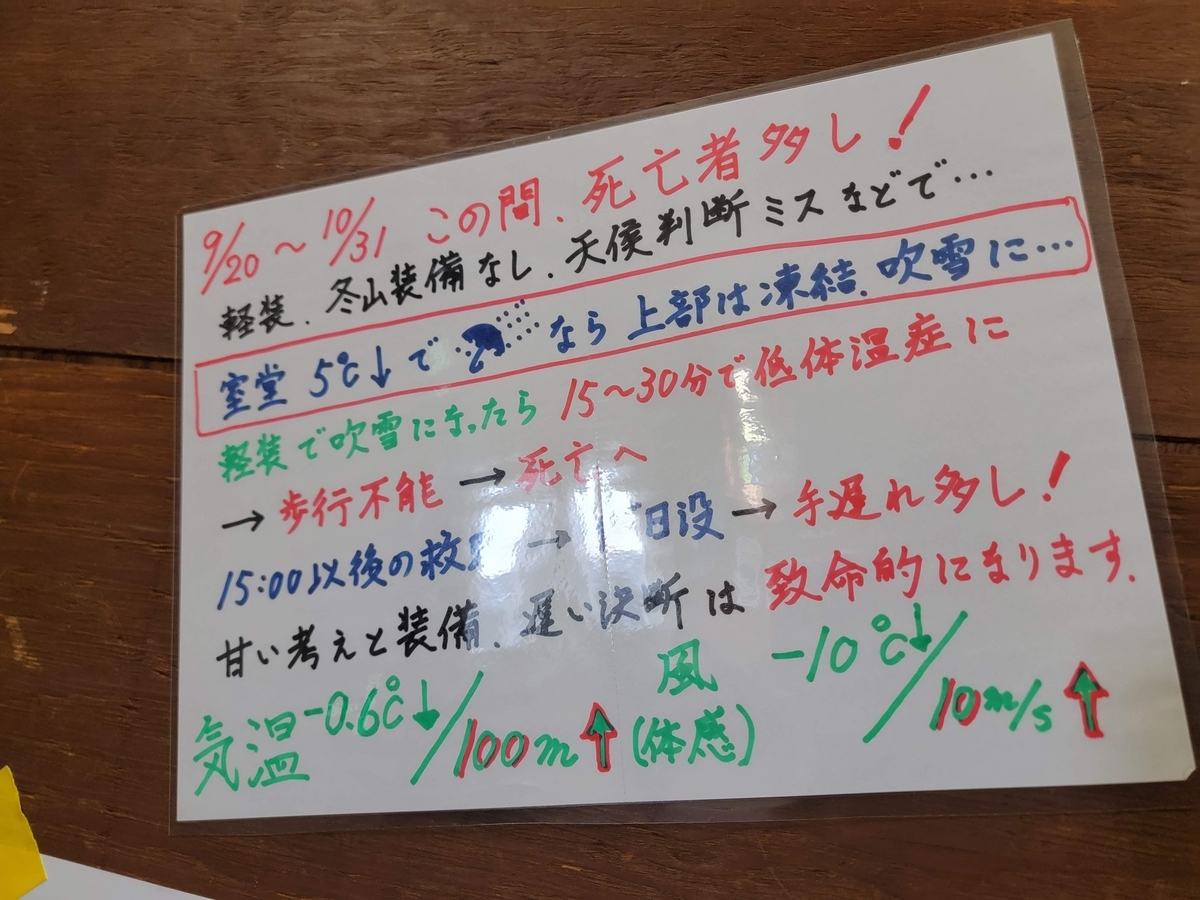 9/20～10/31 この間、死亡者多し！
軽装、冬山装備なし、天侯判断ミスなどで…
室堂 5℃↓で なら 上部は凍結、吹雪に…
軽装で吹雪になったら 15～30分で低体温症に
→歩行不能→死亡へ
15:00以後の救 → 日没→手遅れ多し！
甘い考えと装備、遅い決断は致命的になります。
気温-0.6℃↓/100m↑ 風(体感) -10℃↓/10m/s↑